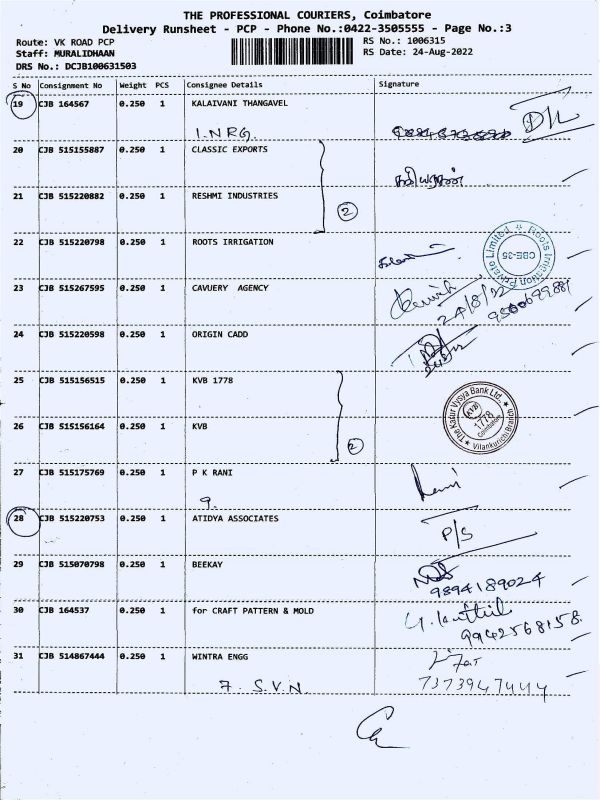 THE PROFESSIONAL COURIERS, Coimbatore
Delivery Runsheet - PCP - Phone No.:0422-3505555 - Page No.:3
Route: VK ROAD PCP RS No.: 1006315
Staff: MURALIDHAAN RS Date: 24-Aug-2022
DRS No.: DCJB100631503
S No Consignment No Weight PCS Consignee Details Signature
19 CJB 164567 0.250 1 KALAIVANI THANGAVEL D/L
I.NRG.
20 CJB 515155887 0.250 1 CLASSIC EXPORTS
21 CJB 515220882 0.250 1 RESHMI INDUSTRIES
2
22 CJB 515220798 0.250 1 ROOTS IRRIGATION
Roots Irrigation Private Limited CBE-35
23 CJB 515267595 0.250 1 CAVUERY AGENCY
24/8/22
24 CJB 515220598 0.250 1 ORIGIN CADD
25 CJB 515156515 0.250 1 KVB 1778
The Karur Vysya Bank Ltd. KVB 1778 Coimbatore Vilankurichi Branch
26 CJB 515156164 0.250 1 KVB
2
27 CJB 515175769 0.250 1 P K RANI Rani
9.
28 CJB 515220753 0.250 1 ATIDYA ASSOCIATES P/S
29 CJB 515070798 0.250 1 BEEKAY
9894189024
30 CJB 164537 0.250 1 for CRAFT PATTERN & MOLD
9942568158
31 CJB 514867444 0.250 1 WINTRA ENGG
7. S.V.N. 7373947444